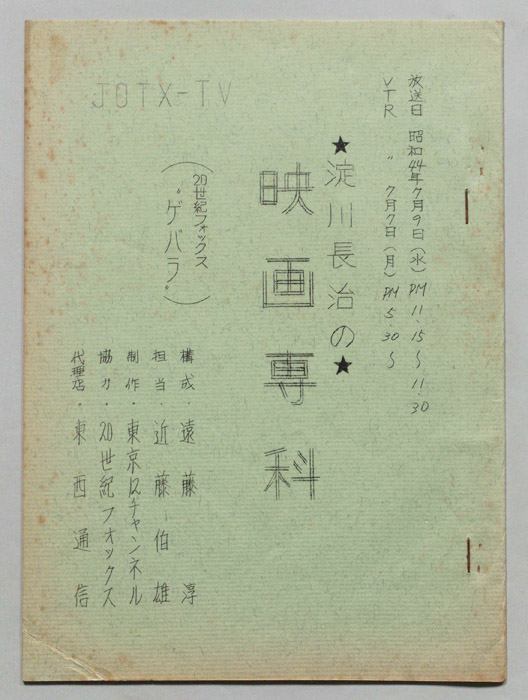 放送日 昭和44年7月9日(水) PM 11.15〜11.30
VTR 〃 7月7日(月) PM 5.30〜
★淀川長治の★
映画専科
(20世紀フォックス
"ゲバラ")
JOTX-TV
構成・遠藤 淳
担当・近藤伯雄
制作・東京12チャンネル
協力・20世紀フォックス
代理店・東西通信